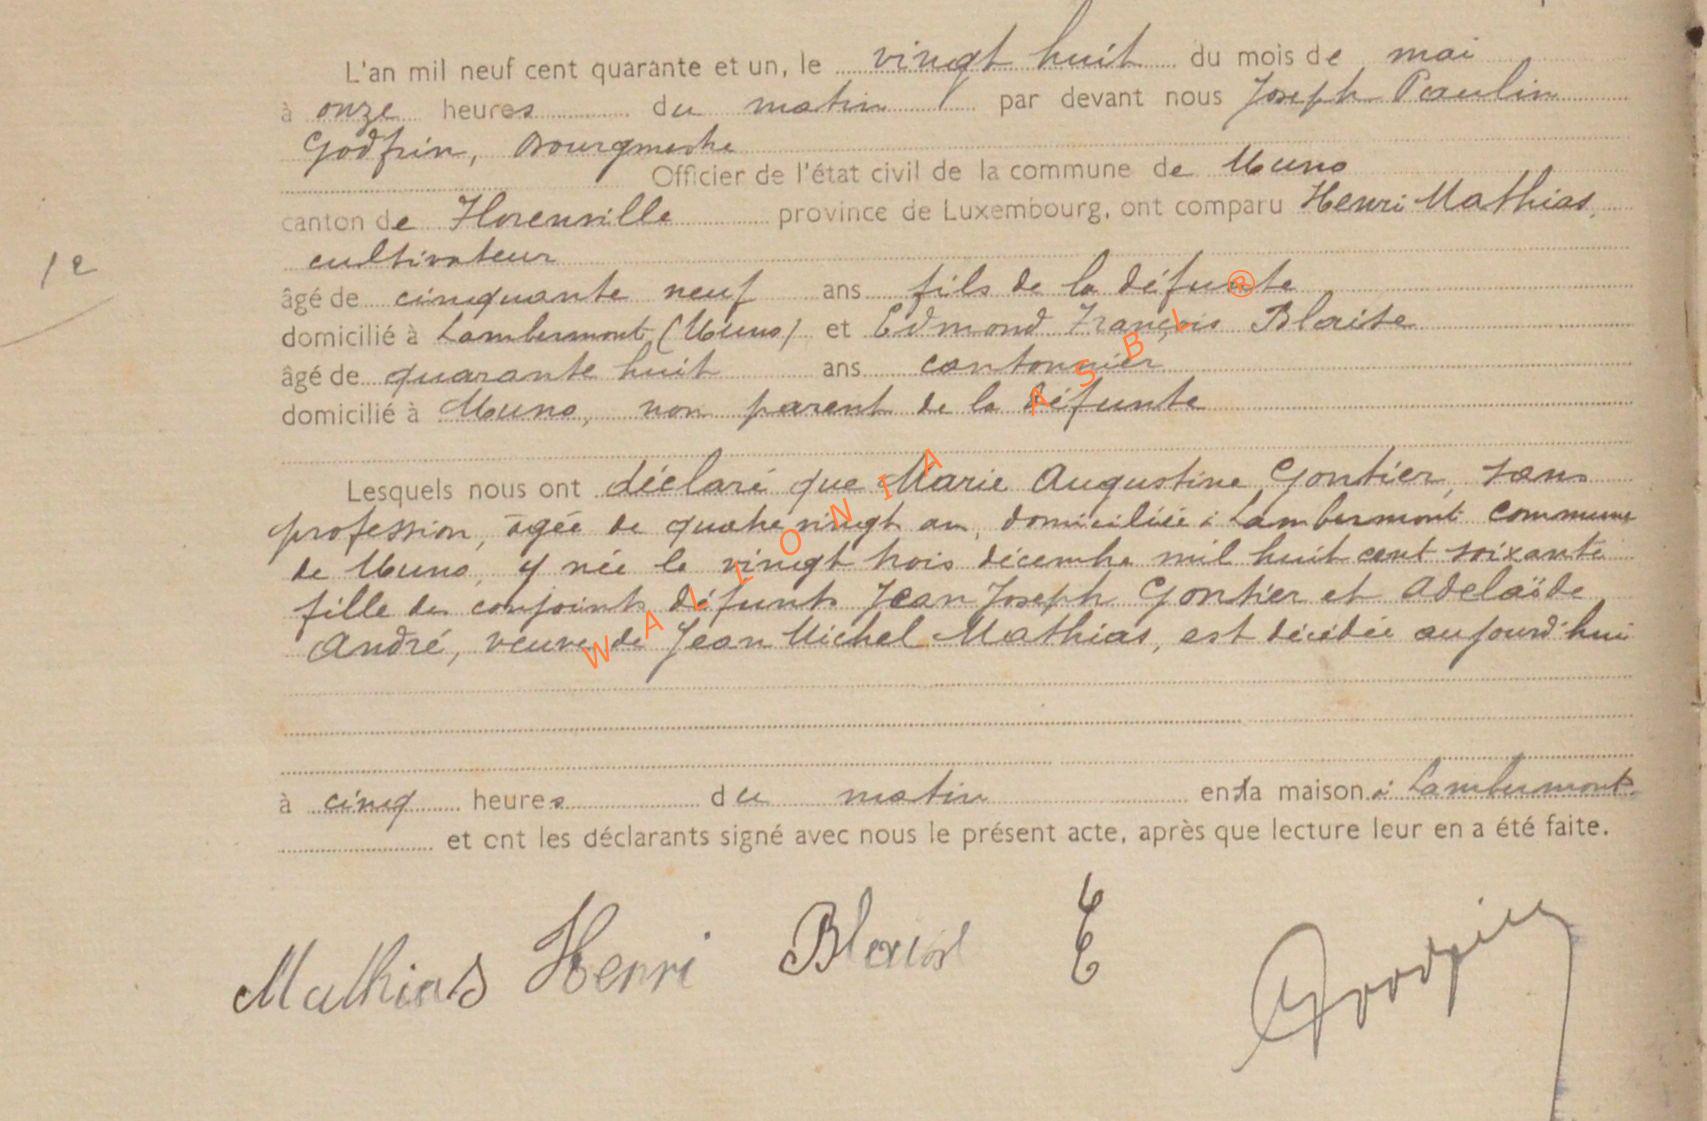 L'an mil neuf cent quarante et un, le vingt huit du mois de mai
à onze heures du matin par devant nous Joseph Paulin
Godfrin, Bourgmestre
Officier de l'état civil de la commune de Muno
canton de Florenville province de Luxembourg, ont comparu Henri Mathias,
cultivateur
12
âgé de cinquante neuf ans fils de la défunte
domicilié à Lambermont (Muno) et Edmond François Blaise
âgé de quarante huit ans cantonnier
domicilié à Muno, non parent de la défunte
Lesquels nous ont déclaré que Marie Augustine Gontier, sans
profession, âgée de quatre vingt ans, domiciliée à Lambermont commune
de Muno, y née le vingt trois décembre mil huit cent soixante
fille des conjoints défunts Jean Joseph Gontier et Adelaïde
André, veuve de Jean Michel Mathias, est décédée aujourd'hui
à cinq heures du matin en la maison à Lambermont
et ont les déclarants signé avec nous le présent acte, après que lecture leur en a été faite.
Mathias Henri Blaise E Godfrin
WALLONIA ASBL ®